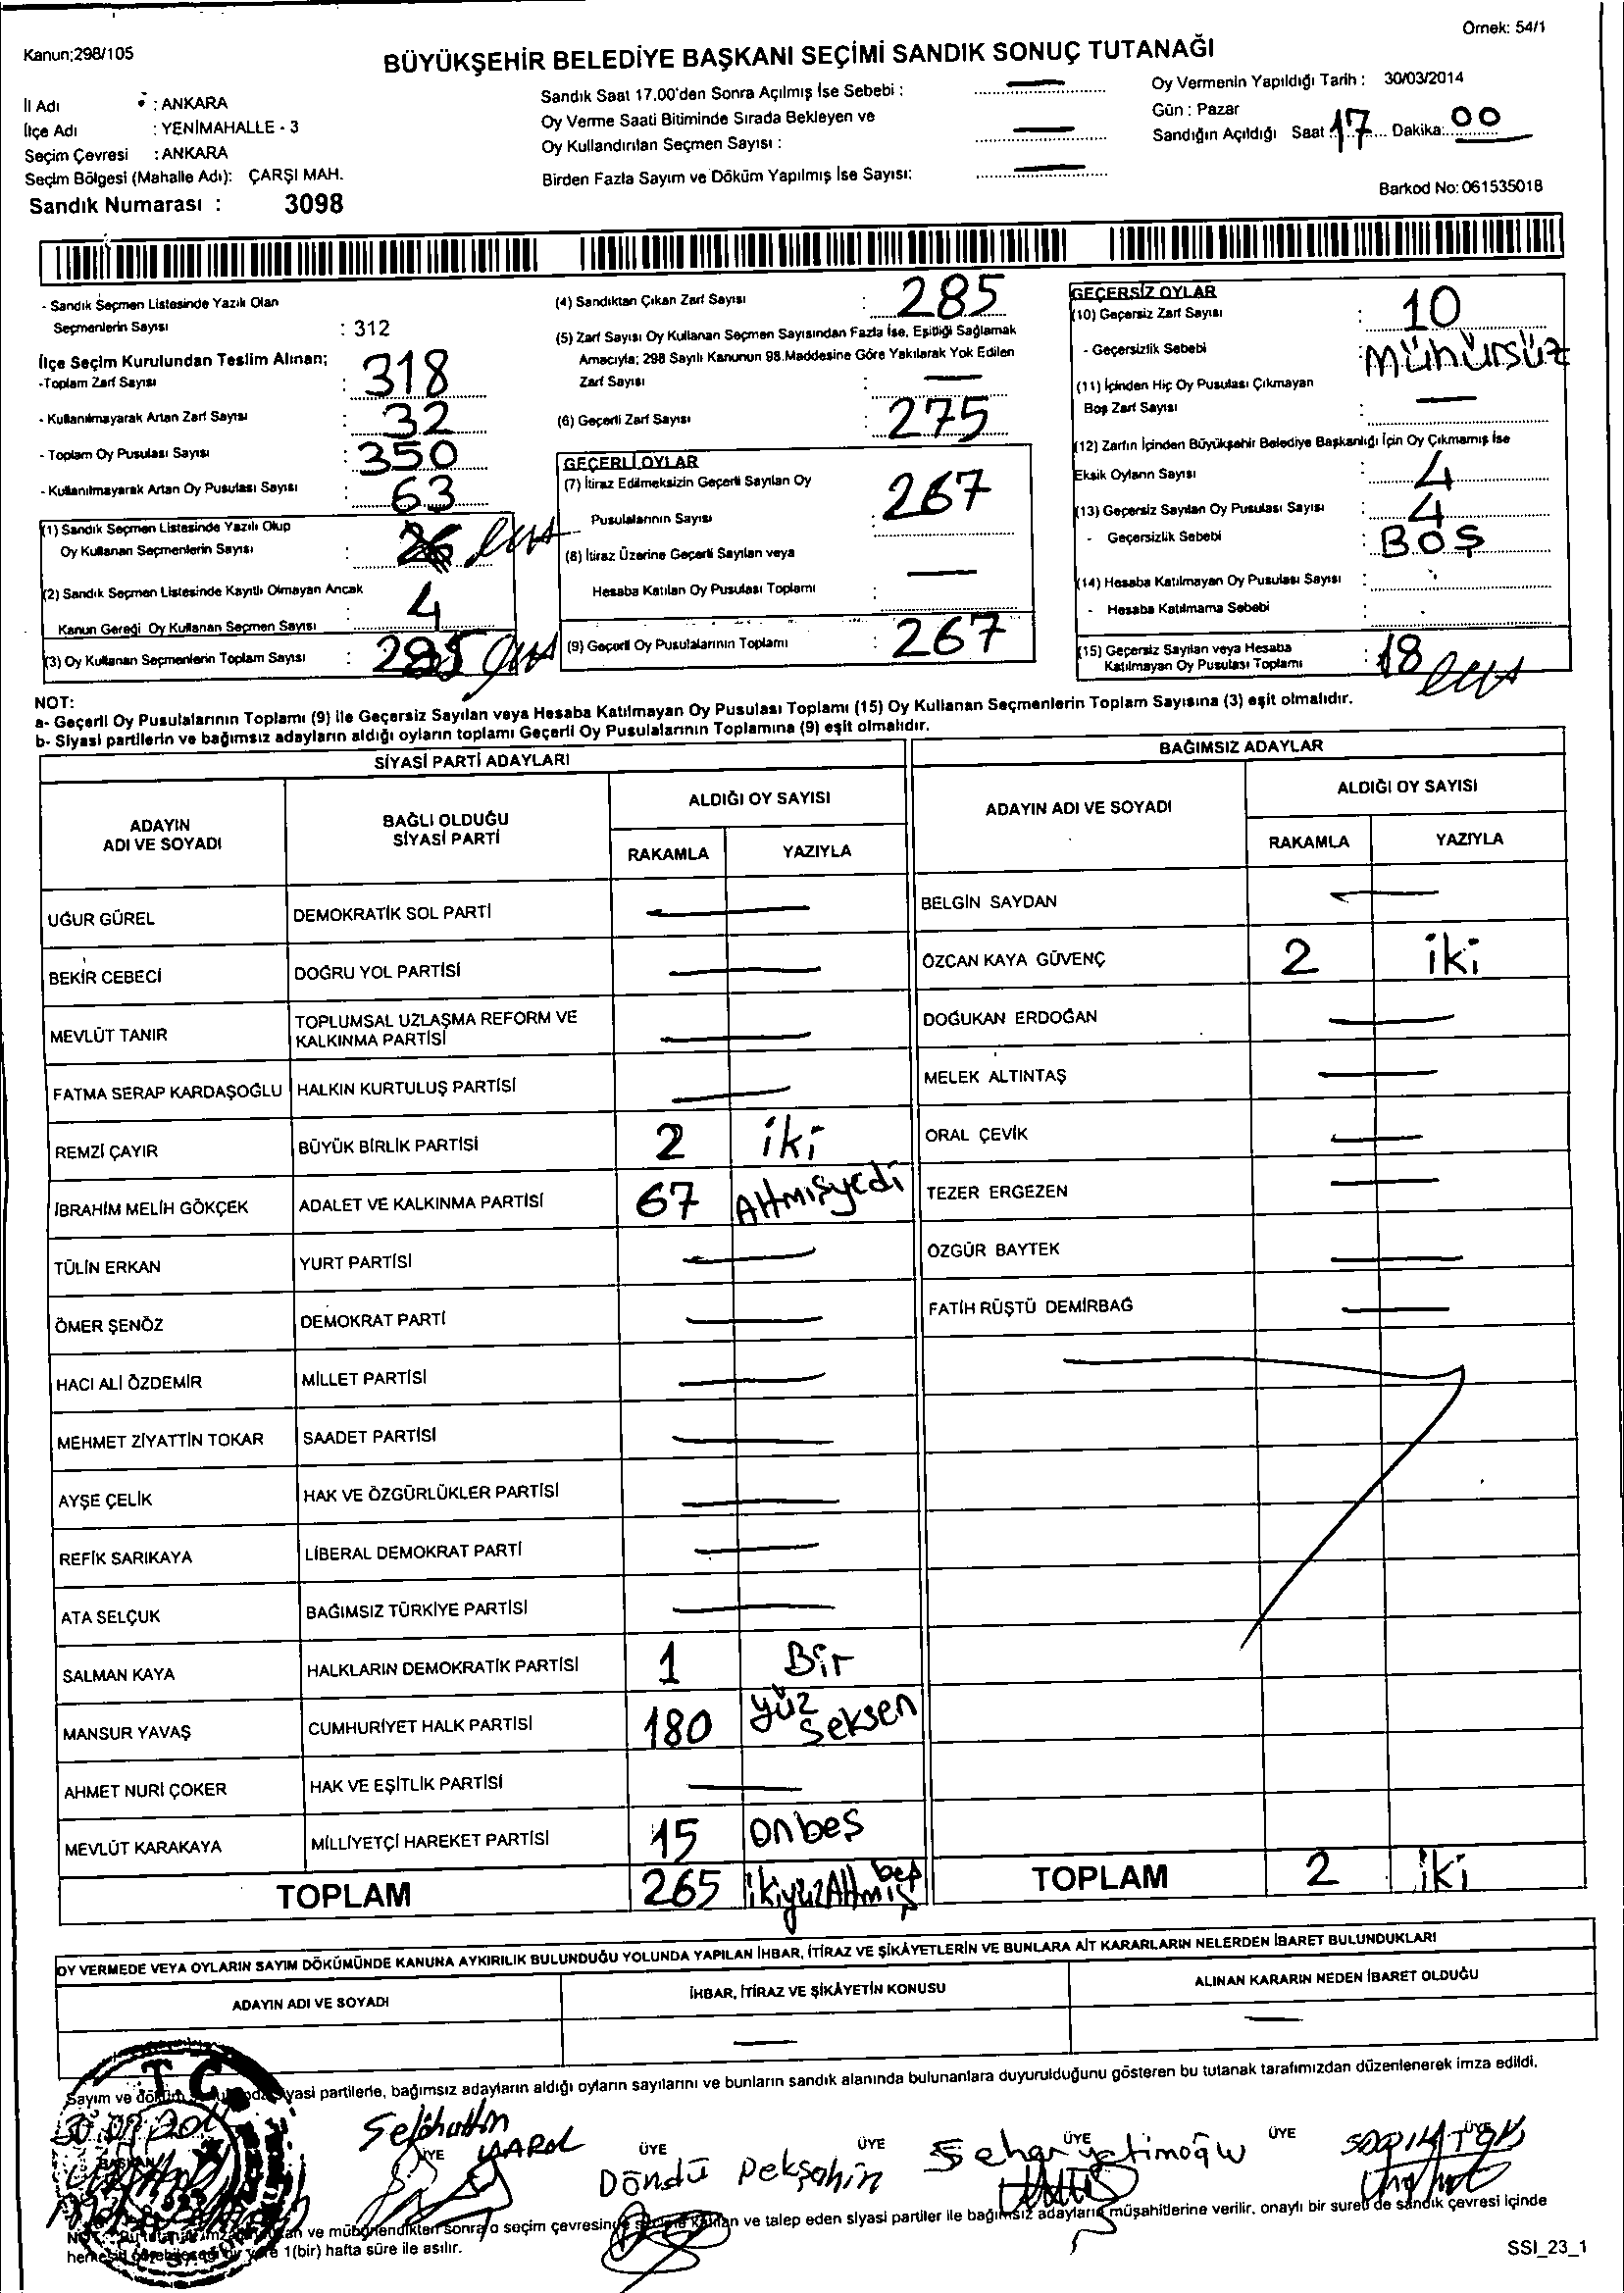 Örnek: 54/1
Kanun;298/105
BÜYÜKŞEHİR BELEDİYE BAŞKANI SEÇİMİ SANDIK SONUÇ TUTANAĞI
İl Adı : ANKARA
İlçe Adı : YENİMAHALLE - 3
Seçim Çevresi : ANKARA
Seçim Bölgesi (Mahalle Adı): ÇARŞI MAH.
Sandık Numarası : 3098
Sandık Saat 17.00'den Sonra Açılmış İse Sebebi : —
Oy Verme Saati Bitiminde Sırada Bekleyen ve
Oy Kullandırılan Seçmen Sayısı : —
Birden Fazla Sayım ve Döküm Yapılmış İse Sayısı: —
Oy Vermenin Yapıldığı Tarih : 30/03/2014
Gün : Pazar
Sandığın Açıldığı Saat 17 Dakika: 00
Barkod No: 061535018
- Sandık Seçmen Listesinde Yazılı Olan
Seçmenlerin Sayısı : 312
İlçe Seçim Kurulundan Teslim Alınan;
-Toplam Zarf Sayısı : 318
- Kullanılmayarak Artan Zarf Sayısı : 32
- Toplam Oy Pusulası Sayısı : 350
- Kullanılmayarak Artan Oy Pusulası Sayısı : 63
(1) Sandık Seçmen Listesinde Yazılı Olup
Oy Kullanan Seçmenlerin Sayısı :
(2) Sandık Seçmen Listesinde Kayıtlı Olmayan Ancak
Kanun Gereği Oy Kullanan Seçmen Sayısı : 4
(3) Oy Kullanan Seçmenlerin Toplam Sayısı : 285
(4) Sandıktan Çıkan Zarf Sayısı : 285
(5) Zarf Sayısı Oy Kullanan Seçmen Sayısından Fazla İse, Eşitliği Sağlamak
Amacıyla; 298 Sayılı Kanunun 98.Maddesine Göre Yakılarak Yok Edilen
Zarf Sayısı : —
(6) Geçerli Zarf Sayısı : 275
GEÇERLİ OYLAR
(7) İtiraz Edilmeksizin Geçerli Sayılan Oy
Pusulalarının Sayısı : 267
(8) İtiraz Üzerine Geçerli Sayılan veya
Hesaba Katılan Oy Pusulası Toplamı : —
(9) Geçerli Oy Pusulalarının Toplamı : 267
GEÇERSİZ OYLAR
(10) Geçersiz Zarf Sayısı : 10
- Geçersizlik Sebebi : Mühürsüz
(11) İçinden Hiç Oy Pusulası Çıkmayan
Boş Zarf Sayısı : —
(12) Zarfın İçinden Büyükşehir Belediye Başkanlığı İçin Oy Çıkmamış İse
Eksik Oyların Sayısı : 4
(13) Geçersiz Sayılan Oy Pusulası Sayısı : 4
- Geçersizlik Sebebi : BOŞ
(14) Hesaba Katılmayan Oy Pusulası Sayısı :
- Hesaba Katılmama Sebebi :
(15) Geçersiz Sayılan veya Hesaba
Katılmayan Oy Pusulası Toplamı : 18
NOT:
a- Geçerli Oy Pusulalarının Toplamı (9) ile Geçersiz Sayılan veya Hesaba Katılmayan Oy Pusulası Toplamı (15) Oy Kullanan Seçmenlerin Toplam Sayısına (3) eşit olmalıdır.
b- Siyasi partilerin ve bağımsız adayların aldığı oyların toplamı Geçerli Oy Pusulalarının Toplamına (9) eşit olmalıdır.
SİYASİ PARTİ ADAYLARI
ADAYIN ADI VE SOYADI
BAĞLI OLDUĞU SİYASİ PARTİ
ALDIĞI OY SAYISI
RAKAMLA YAZIYLA
UĞUR GÜREL DEMOKRATİK SOL PARTİ —
BEKİR CEBECİ DOĞRU YOL PARTİSİ —
MEVLÜT TANIR TOPLUMSAL UZLAŞMA REFORM VE KALKINMA PARTİSİ —
FATMA SERAP KARDAŞOĞLU HALKIN KURTULUŞ PARTİSİ —
REMZİ ÇAYIR BÜYÜK BİRLİK PARTİSİ 2 iki
İBRAHİM MELİH GÖKÇEK ADALET VE KALKINMA PARTİSİ 67 Altmışyedi
TÜLİN ERKAN YURT PARTİSİ —
ÖMER ŞENÖZ DEMOKRAT PARTİ —
HACI ALİ ÖZDEMİR MİLLET PARTİSİ —
MEHMET ZİYATTİN TOKAR SAADET PARTİSİ —
AYŞE ÇELİK HAK VE ÖZGÜRLÜKLER PARTİSİ —
REFİK SARIKAYA LİBERAL DEMOKRAT PARTİ —
ATA SELÇUK BAĞIMSIZ TÜRKİYE PARTİSİ —
SALMAN KAYA HALKLARIN DEMOKRATİK PARTİSİ 1 Bir
MANSUR YAVAŞ CUMHURİYET HALK PARTİSİ 180 yüz seksen
AHMET NURİ ÇOKER HAK VE EŞİTLİK PARTİSİ —
MEVLÜT KARAKAYA MİLLİYETÇİ HAREKET PARTİSİ 15 onbeş
TOPLAM 265 ikiyüzAltmış beş
BAĞIMSIZ ADAYLAR
ADAYIN ADI VE SOYADI
ALDIĞI OY SAYISI
RAKAMLA YAZIYLA
BELGİN SAYDAN —
ÖZCAN KAYA GÜVENÇ 2 iki
DOĞUKAN ERDOĞAN —
MELEK ALTINTAŞ —
ORAL ÇEVİK —
TEZER ERGEZEN —
ÖZGÜR BAYTEK —
FATİH RÜŞTÜ DEMİRBAĞ —
TOPLAM 2 iki
OY VERMEDE VEYA OYLARIN SAYIM DÖKÜMÜNDE KANUNA AYKIRILIK BULUNDUĞU YOLUNDA YAPILAN İHBAR, İTİRAZ VE ŞİKÂYETLERİN VE BUNLARA AİT KARARLARIN NELERDEN İBARET BULUNDUKLARI
ADAYIN ADI VE SOYADI
İHBAR, İTİRAZ VE ŞİKÂYETİN KONUSU
ALINAN KARARIN NEDEN İBARET OLDUĞU
— —
Sayım ve döküm siyasi partilerle, bağımsız adayların aldığı oyların sayılarını ve bunların sandık alanında bulunanlara duyurulduğunu gösteren bu tutanak tarafımızdan düzenlenerek imza edildi.
T.C.
BAŞKAN
ÜYE ÜYE ÜYE ÜYE ÜYE ÜYE
Selahattin
Döndü Pekşahin
Seher yetimoğlu
ve mühürlendikten sonra o seçim çevresinde seçime katılan ve talep eden siyasi partiler ile bağımsız adayların müşahitlerine verilir, onaylı bir sureti de sandık çevresi içinde
herkesin görebileceği bir yere 1(bir) hafta süre ile asılır.
SSI_23_1